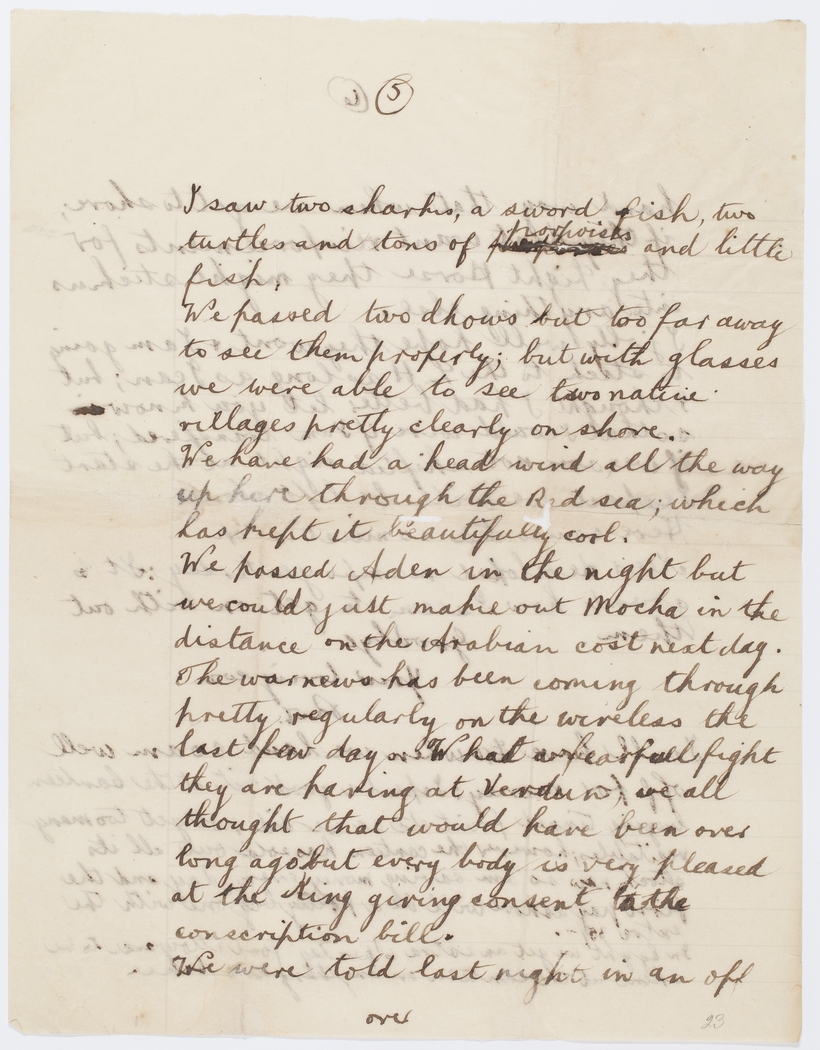 5
I saw two sharks, a sword fish, two
porpoises
turtles and tons of and little
fish,
We passed two dhows but too far away
to see them properly; but with glasses
we were able to see two native
villages pretty clearly on shore.
We have had a head wind all the way
up here through the Red sea; which
has kept it beautifully cool.
We passed Aden in the night but
we could just make out Mocha in the
distance on the Arabian cost next day.
The war news has been coming through
pretty regularly on the wireless the
last few days. What a fearfull fight
they are having at Verdun, we all
thought that would have been over
long ago but every body is very pleased
at the King giving consent to the
conscription bill.
We were told last night in an off
over
23